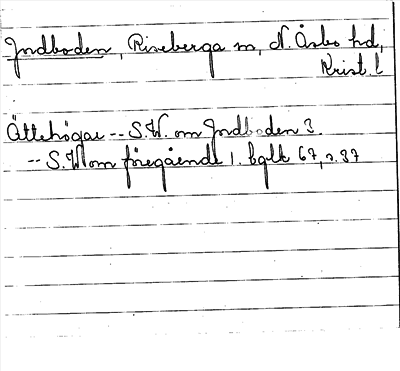 Jordboden, Riseberga sn, N. Åsbo hd,
Krist l
Ättehögar -- S.W. om Jordboden 3.
-- S.W om föregående 1. bglb 67, s. 37